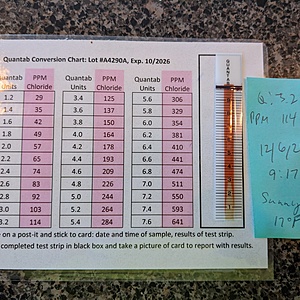 Quantab Conversion Chart: Lot #A4290A, Exp. 10/2026
Quantab Units PPM Chloride Quantab Units PPM Chloride Quantab Units PPM Chloride
1.2 29 3.4 125 5.6 306
1.4 35 3.6 137 5.8 329
1.6 42 3.8 150 6.0 354
1.8 49 4.0 164 6.2 381
2.0 57 4.2 178 6.4 410
2.2 65 4.4 193 6.6 441
2.4 74 4.6 209 6.8 474
2.6 83 4.8 226 7.0 511
2.8 92 5.0 244 7.2 550
3.0 103 5.2 264 7.4 593
3.2 114 5.4 284 7.6 641
e on a post-it and stick to card: date and time of sample, results of test strip.
completed test strip in black box and take a picture of card to report with results.
QUANTAB
Q: 3.2
PPM 114
12/6/2
9:17
Sunny
17°F